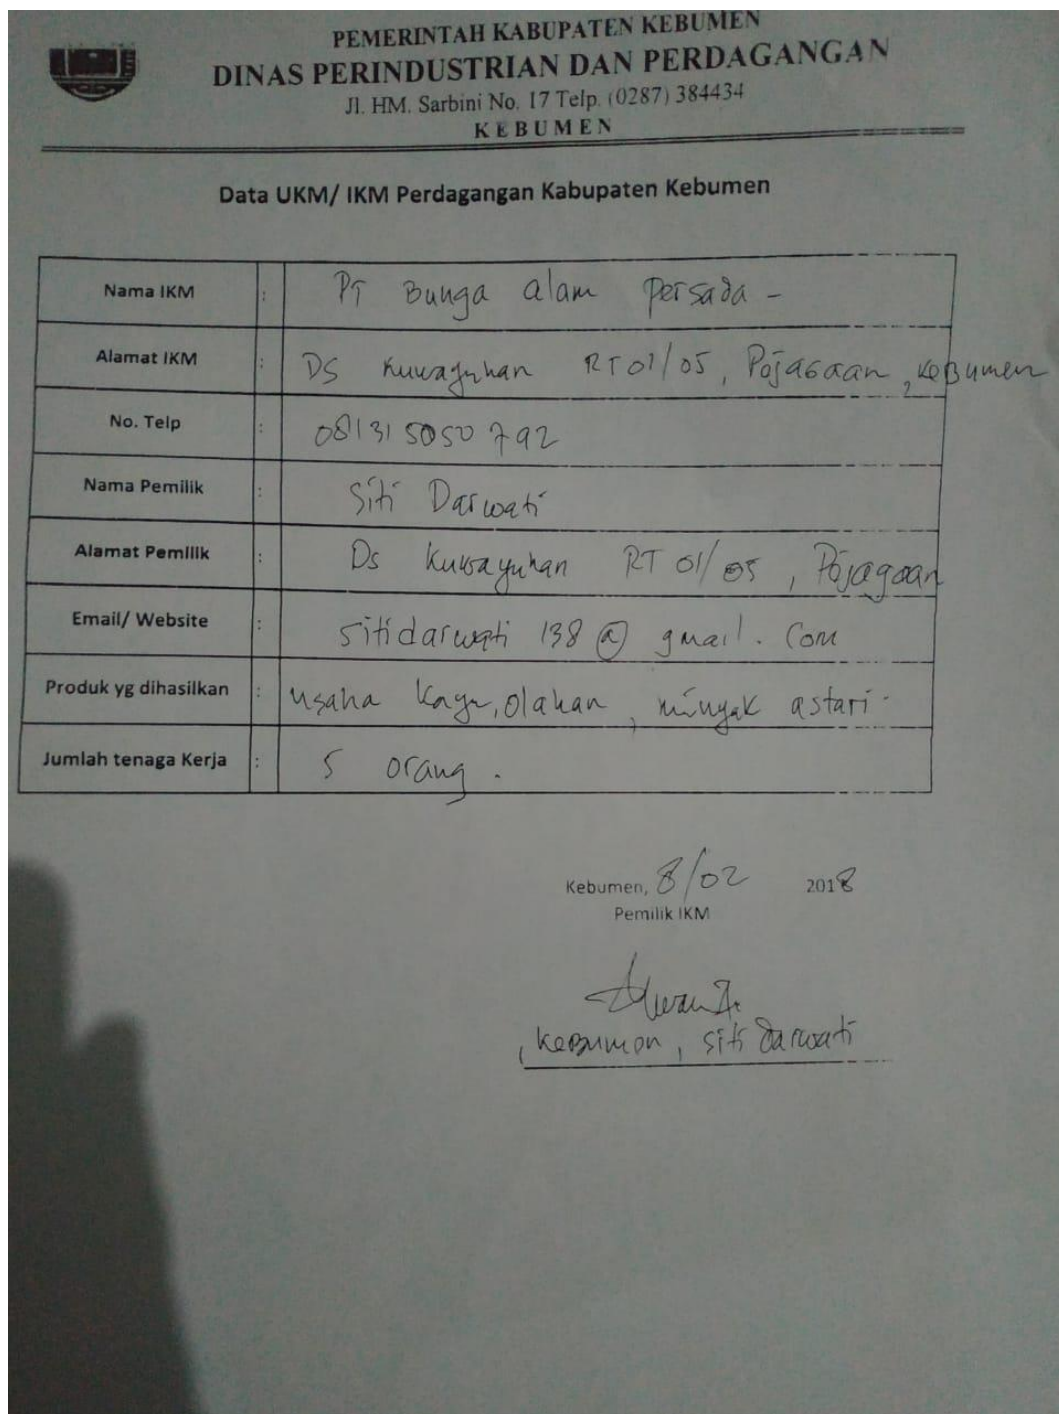 PEMERINTAH KABUPATEN KEBUMEN
DINAS PERINDUSTRIAN DAN PERDAGANGAN
Jl. HM. Sarbini No. 17 Telp. (0287) 384434
KEBUMEN
Data UKM/ IKM Perdagangan Kabupaten Kebumen
Nama IKM : PT Bunga alam Persada -
Alamat IKM : DS Kuwayuhan RT 01/05, Pejagoan, Kebumen
No. Telp : 081315050792
Nama Pemilik : Siti Darwati
Alamat Pemilik : Ds Kuwayuhan RT 01/05, Pejagoan
Email/ Website : sitidarwati138@gmail.com
Produk yg dihasilkan : usaha kayu, olahan, minyak astari.
Jumlah tenaga Kerja : 5 orang.
Kebumen, 8/02 2018
Pemilik IKM
Kebumen, siti Darwati